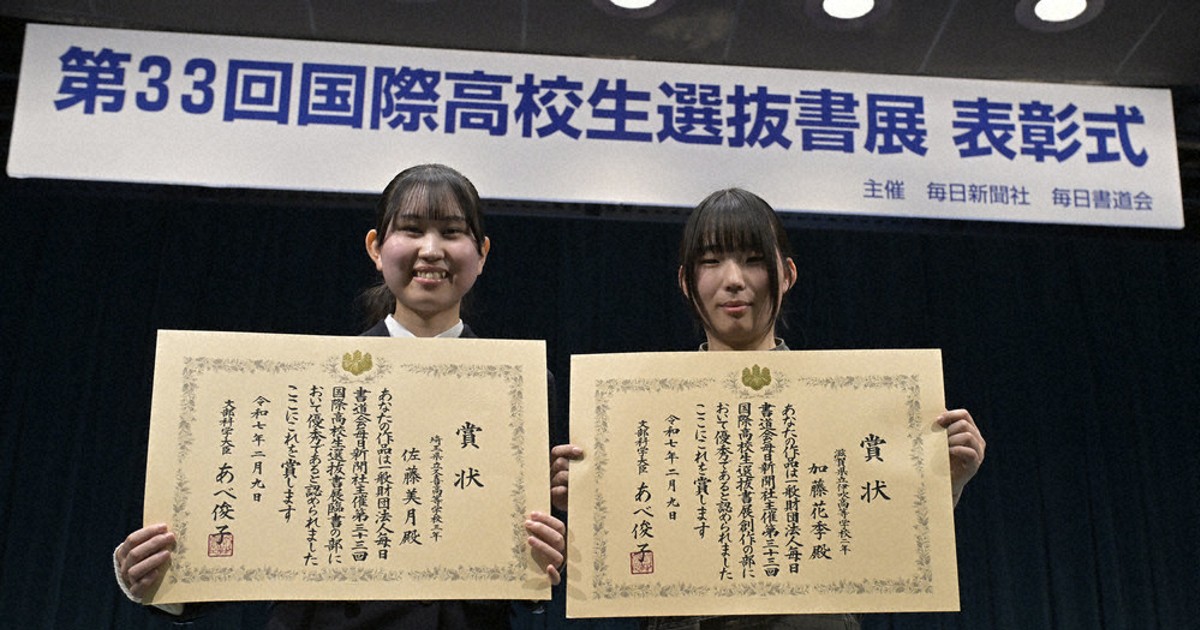 第33回国際高校生選抜書展 表彰式
主催 毎日新聞社 毎日書道会
賞状
埼玉県立大宮高等学校三年
佐藤美月殿
あなたの作品は一般財団法人毎日
書道会毎日新聞社主催第三十三回
国際高校生選抜書展臨書の部に
おいて優秀であると認められました
ここにこれを賞します
令和七年二月九日
文部科学大臣 あべ俊子
賞状
滋賀県立伊吹高等学校二年
加藤花季殿
あなたの作品は一般財団法人毎日
書道会毎日新聞社主催第三十三回
国際高校生選抜書展創作の部に
おいて優秀であると認められました
ここにこれを賞します
令和七年二月九日
文部科学大臣 あべ俊子